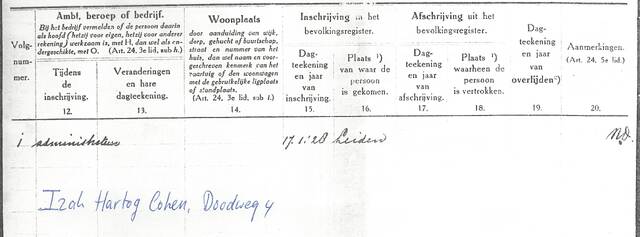 Volg-
num-
mer.
Ambt, beroep of bedrijf.
Bij het bedrijf vermelden of de persoon daarin
als hoofd (hetzij voor eigen, hetzij voor anderer
rekening) werkzaam is, met H, dan wel als on-
dergeschikte, met O. (Art. 24, 3e lid, sub h.)
Tijdens
de
inschrijving.
12.
Veranderingen
en hare
dagteekening.
13.
Woonplaats
door aanduiding van wijk,
dorp, gehucht of buurtschap,
straat en nummer van het
huis, dan wel naam en voor-
geschreven kenmerk van het
vaartuig of den woonwagen
met de gebruikelijke ligplaats
of standplaats.
(Art. 24, 3e lid sub i.)
14.
Inschrijving in het
bevolkingsregister.
Dag-
teekening
en jaar
van
inschrijving.
15.
Plaats ¹)
van waar de
persoon
is gekomen.
16.
Afschrijving uit het
bevolkingsregister.
Dag-
teekening
en jaar
van
afschrijving.
17.
Plaats ¹)
waarheen de
persoon
is vertrokken.
18.
Dag-
teekening
en jaar
van
overlijden²).
19.
Aanmerkingen.
(Art. 24, 5e lid.)
20.
1 administrateur 17.1.'28 Leiden N.I.
Izak Hartog Cohen, Doodweg 4